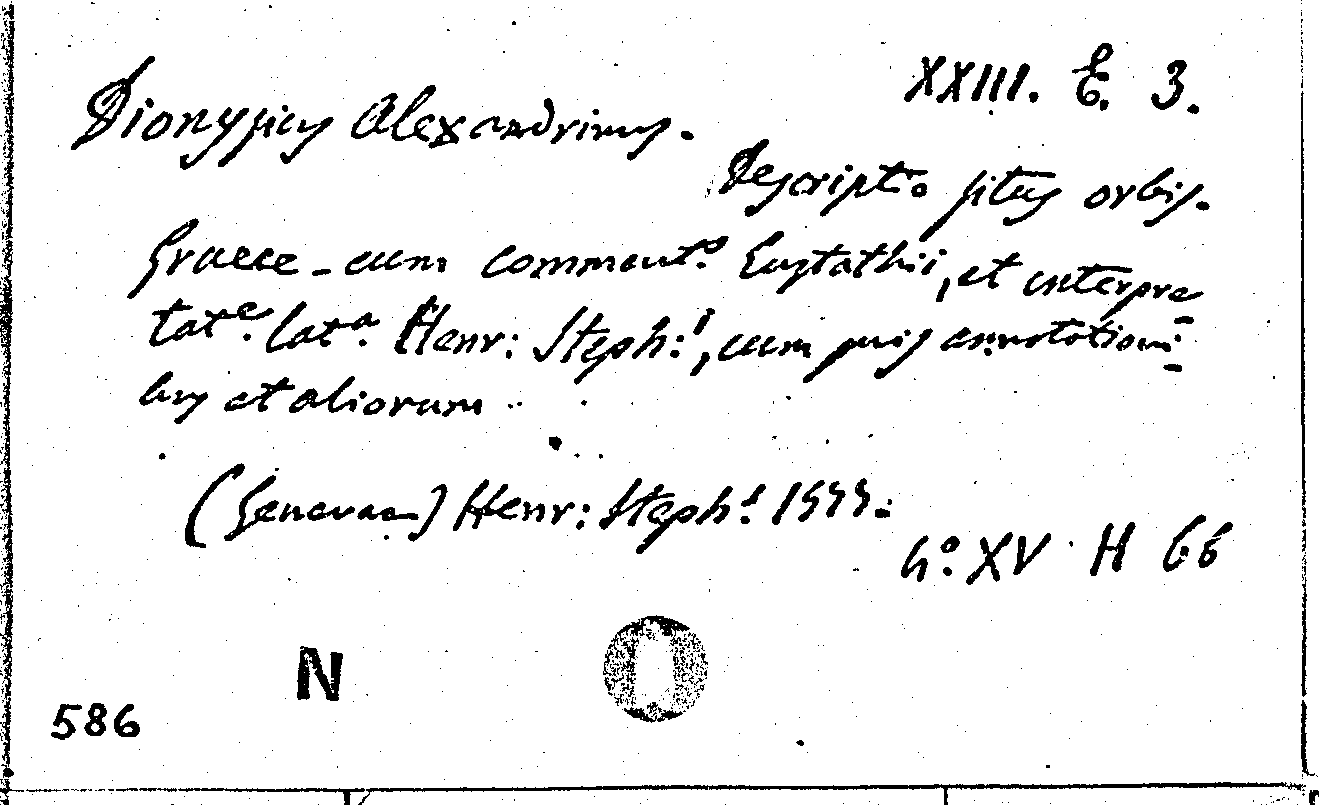 XXIII. E. 3.
Dionysius Alexandrinus.
Descriptº situs orbis.
Graece cum commentº Eustathii, et interpre
tatᵉ. latᵃ. Henr: Steph:ⁱ, cum suis annotationi
bus et aliorum
(Genevae) Henr: Steph.ˢ
4º. XV H 66
N
586